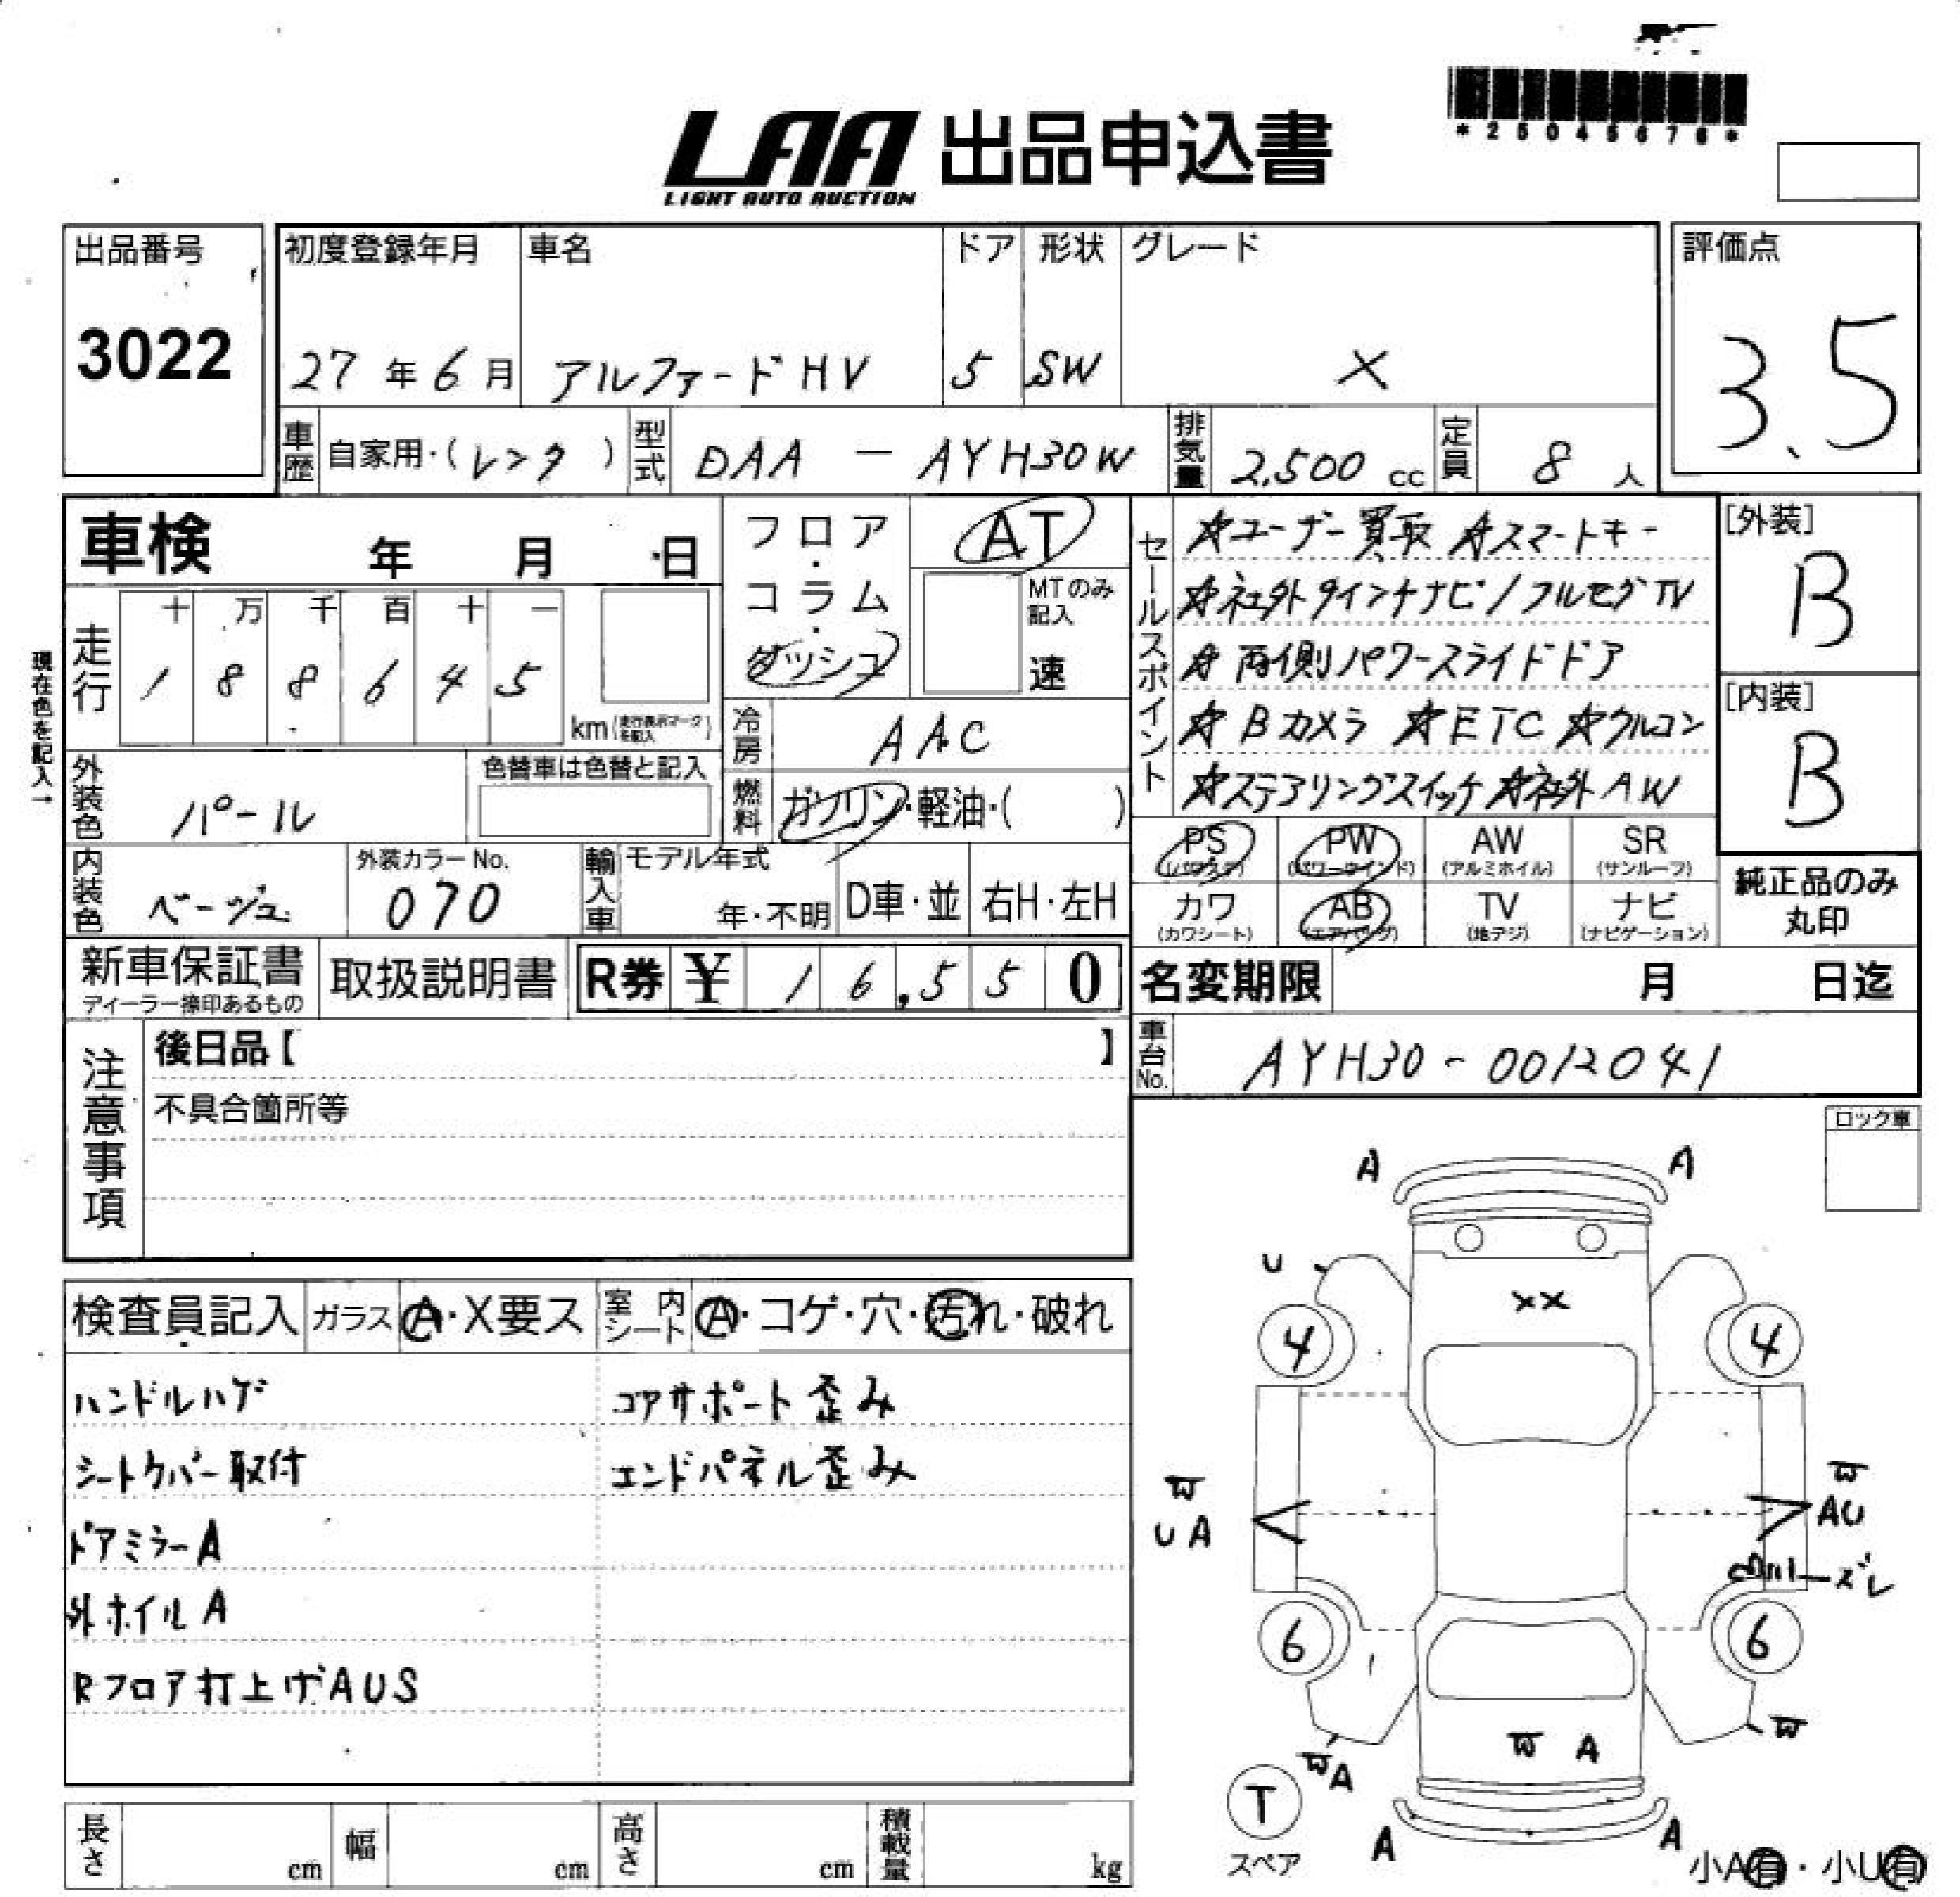 *25045676*
LAA 出品申込書
LIGHT AUTO AUCTION
出品番号 3022
初度登録年月 27年6月
車名 アルファードHV
ドア 5
形状 SW
グレード X
評価点 3.5
車歴 自家用・(レンタ)
型式 DAA - AYH30W
排気量 2,500 cc
定員 8人
車検 年 月 日
フロア・コラム・ダッシュ
AT
MTのみ記入
速
セールスポイント
☆ユーザー買取 ☆スマートキー
☆社外9インチナビ/フルセグTV
☆両側パワースライドドア
☆Bカメラ ☆ETC ☆クルコン
☆ステアリングスイッチ ☆社外AW
[外装] B
[内装] B
現在色を記入→
走行
十 万 千 百 十 一
1 8 8 6 4 5
km (走行表示マークを記入)
冷房 AAC
外装色 パール
色替車は色替と記入
燃料 ガソリン・軽油・( )
内装色 ベージュ
外装カラーNo. 070
輸入車 モデル年式
年・不明
D車・並
右H・左H
PS (パワステ)
PW (パワーウインド)
AW (アルミホイル)
SR (サンルーフ)
カワ (カワシート)
AB (エアバッグ)
TV (地デジ)
ナビ (ナビゲーション)
純正品のみ
丸印
新車保証書
ディーラー捺印あるもの
取扱説明書
R券 ¥ 16,550
名変期限 月 日迄
注意事項
後日品【 】
不具合箇所等
車台No. AYH30-0012041
ロック車
検査員記入
ガラス A・X要ス
室内シート A・コゲ・穴・汚れ・破れ
ハンドルハゲ コアサポート歪み
シートカバー取付 エンドパネル歪み
ドアミラーA
外ホイルA
Rフロア打上げAUS
A A
U
XX
4 4
W W
UA AU
ズレ
6 6
W
W A
WA
T
スペア
A A
小A有・小U有
長さ cm
幅 cm
高さ cm
積載量 kg